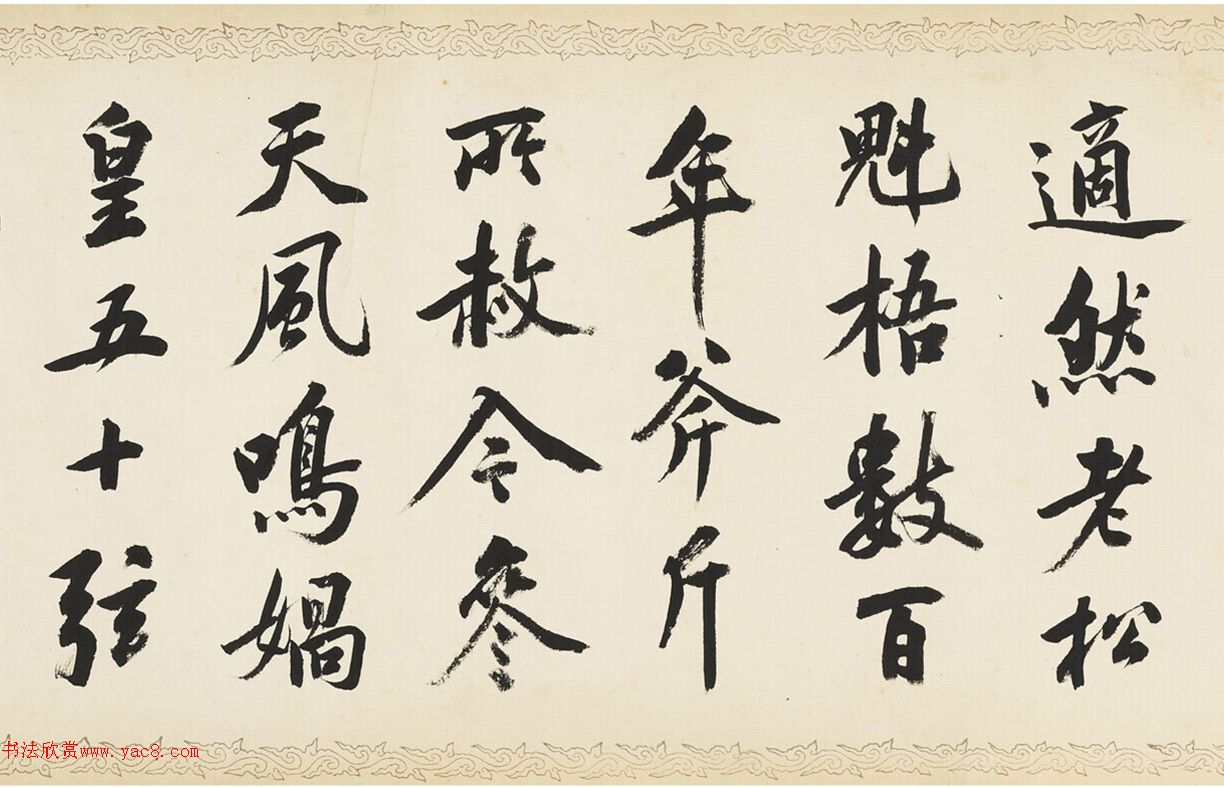 適然老松
魁梧數百
年斧斤
所赦令參
天風鳴媧
皇五十弦
书法欣赏www.yac8.com